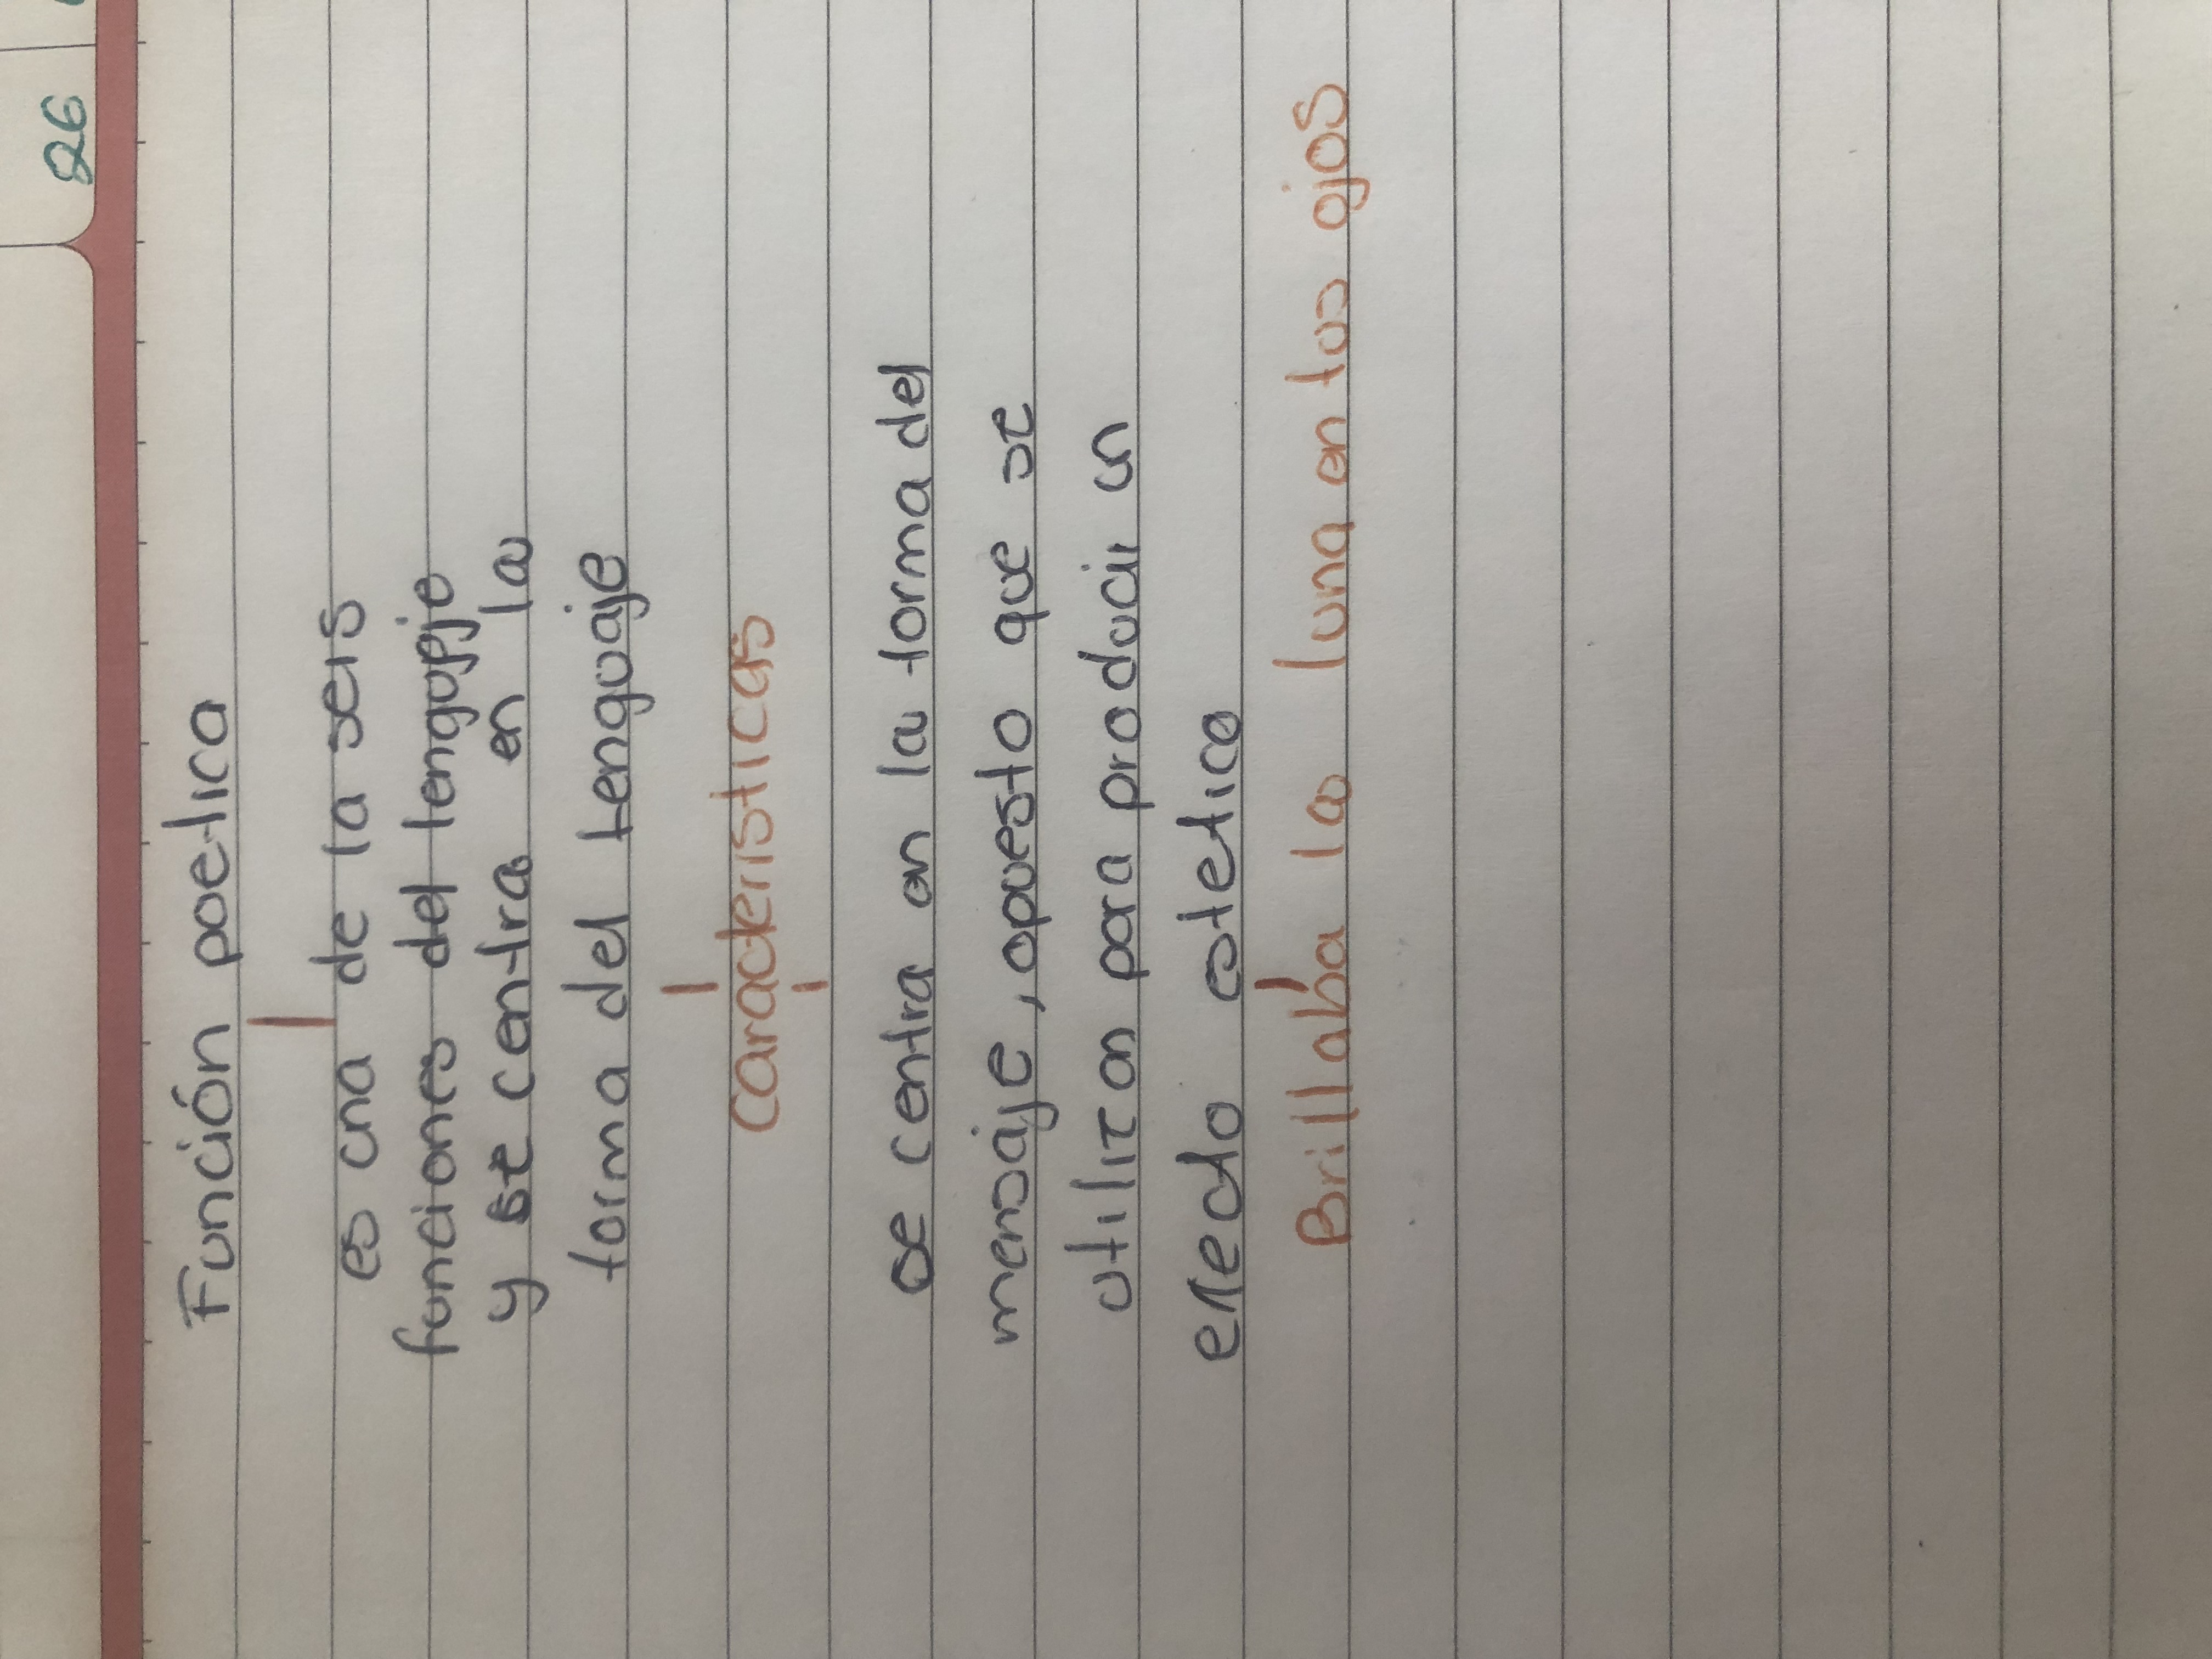 26
Función poetica
es una de la seis
funciones del lenguaje
y se centra en la
forma del lenguaje
caracteristicas
se centra en la forma del
mensaje, opuesto que se
utilizan para producir un
efecto estetico
Brillaba la luna en tus ojos